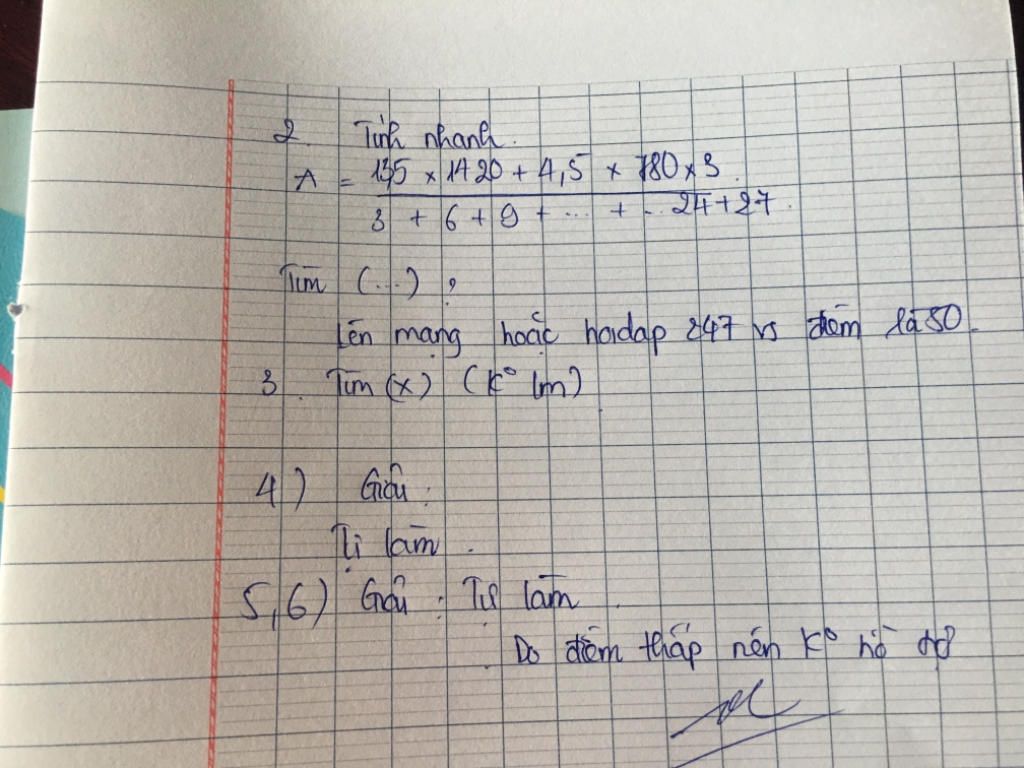 2. Tính nhanh.
A = 135 × 1420 + 4,5 × 780 × 3.
3 + 6 + 9 + ... + .. 24 + 27.
Tìm (...) ?
Lên mạng hoặc hoidap 247 vs điểm là 50.
3. Tìm (x) (k° lm)
4) Giải:
Tự làm.
5,6) Giải: Tự làm.
Do điểm thấp nên k° hỗ trợ